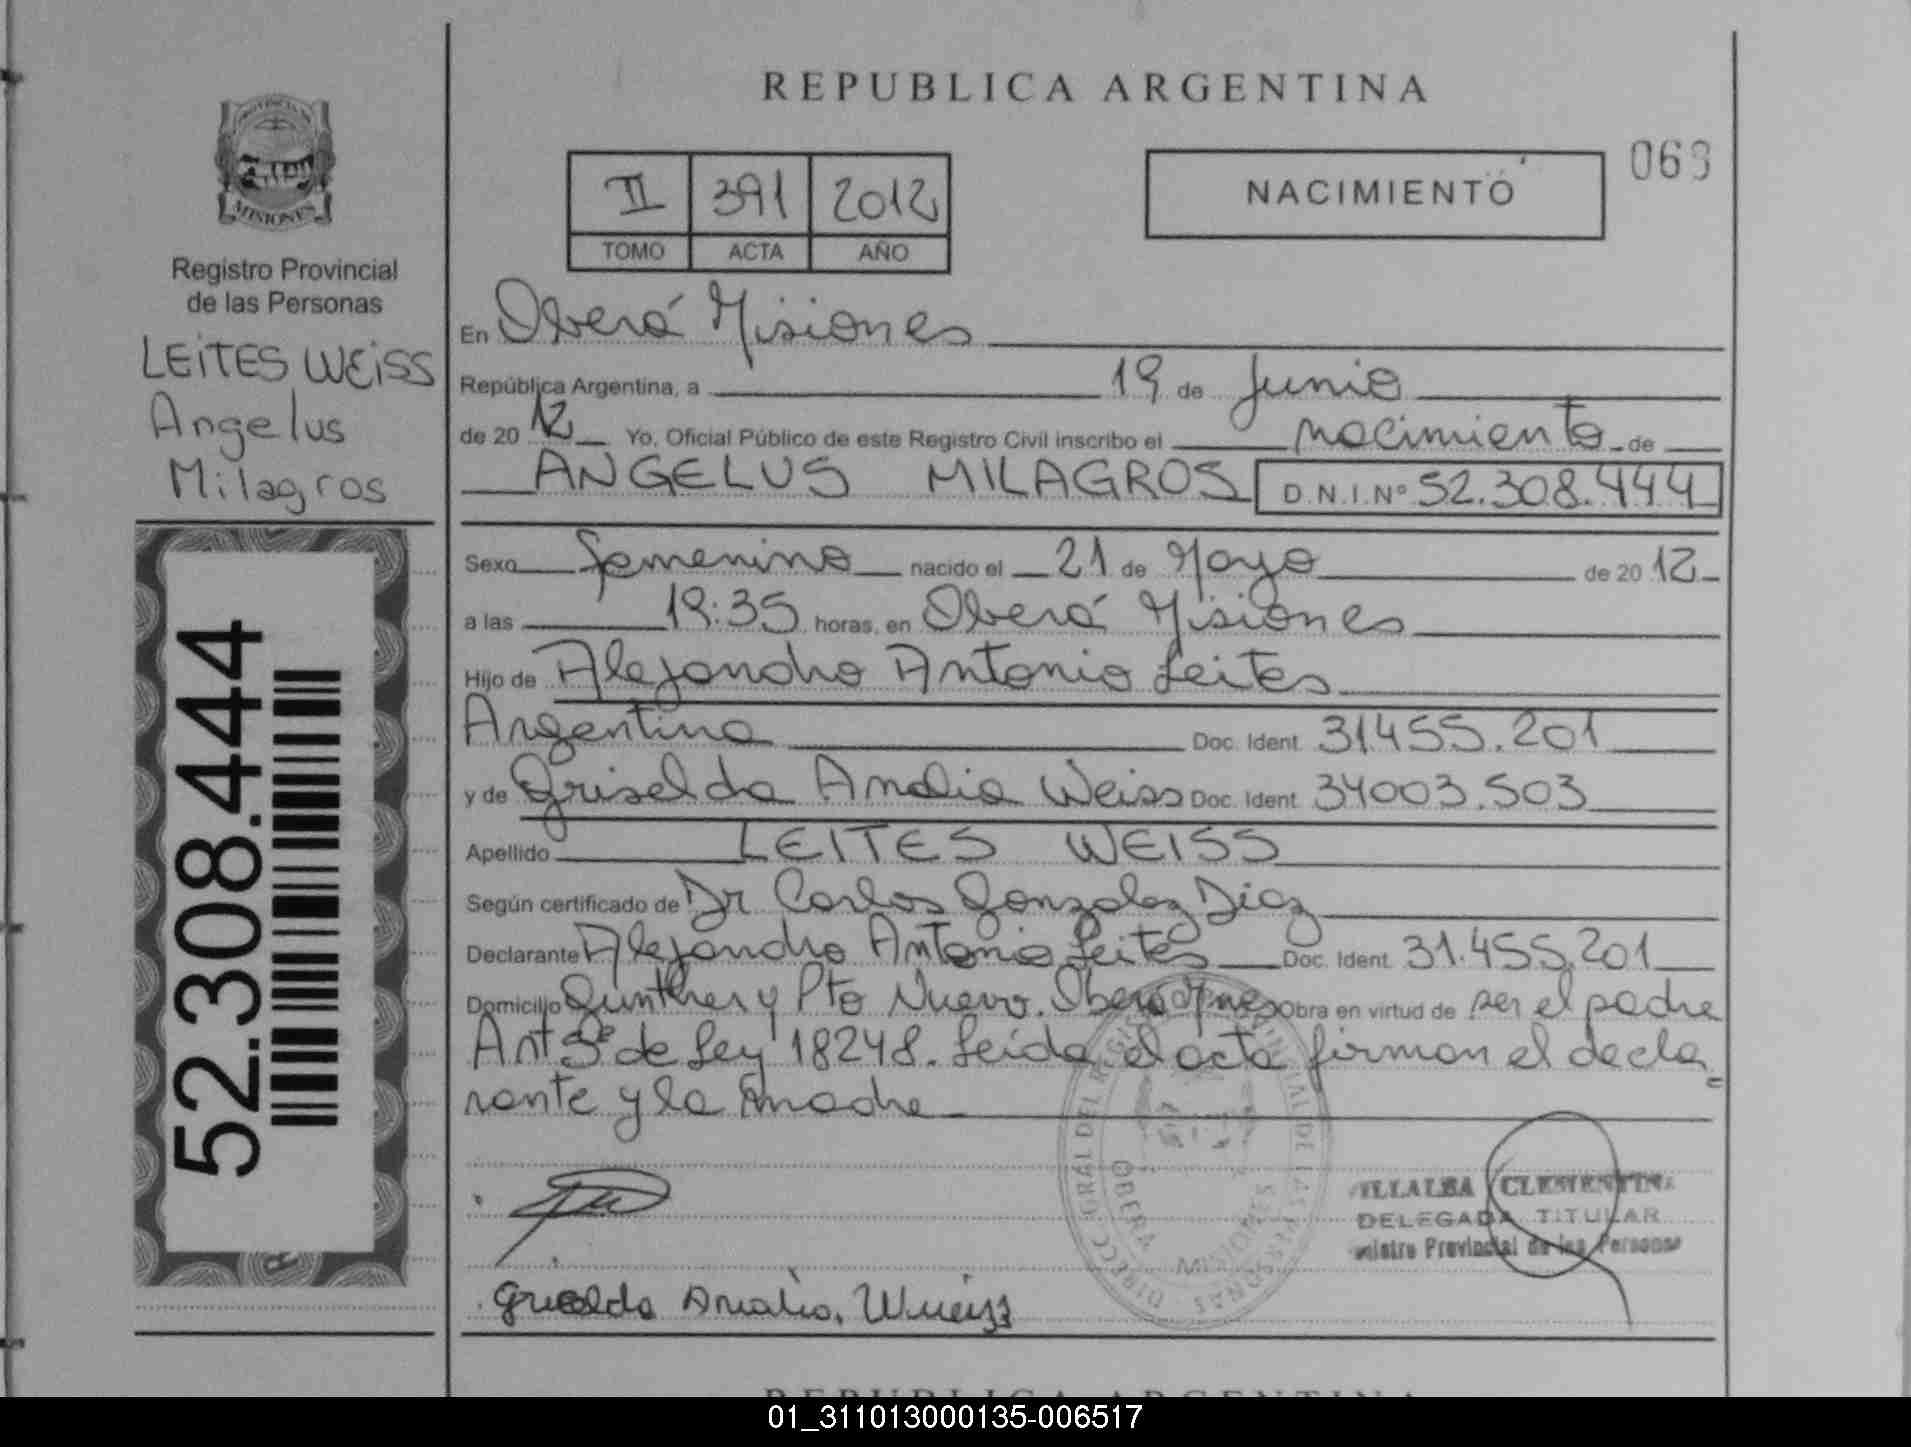 REPUBLICA ARGENTINA
PROVINCIA DE
MISIONES
Registro Provincial
de las Personas
LEITES WEISS
Angelus
Milagros
52.308.444
II 391 2012
TOMO ACTA AÑO
NACIMIENTO
069
En Oberá Misiones
República Argentina, a 19 de Junio
de 2012 Yo, Oficial Público de este Registro Civil inscribo el nacimiento de
ANGELUS MILAGROS D.N.I.Nº 52.308.444
Sexo Femenino nacido el 21 de Mayo de 2012
a las 19:35 horas, en Oberá Misiones
Hijo de Alejandro Antonio Leites
Argentina Doc. Ident. 31.455.201
y de Griselda Analia Weiss Doc. Ident. 34003.503
Apellido LEITES WEISS
Según certificado de Dr Carlos Gonzalez Diaz
Declarante Alejandro Antonio Leites Doc. Ident. 31.455.201
Domicilio Gunther y Pto Nuevo. Oberá Mnes obra en virtud de ser el padre
Art 5º de Ley 18248. Leída el acta firman el decla
rante y la madre
DIRECC. GRAL DEL REGISTRO PROVINCIAL DE LAS PERSONAS
OBERA MISIONES
VILLALBA CLEMENTINA
DELEGADA TITULAR
Registro Provincial de las Personas
Griselda Analia, Wueiss
REPUBLICA ARGENTINA
01_311013000135-006517